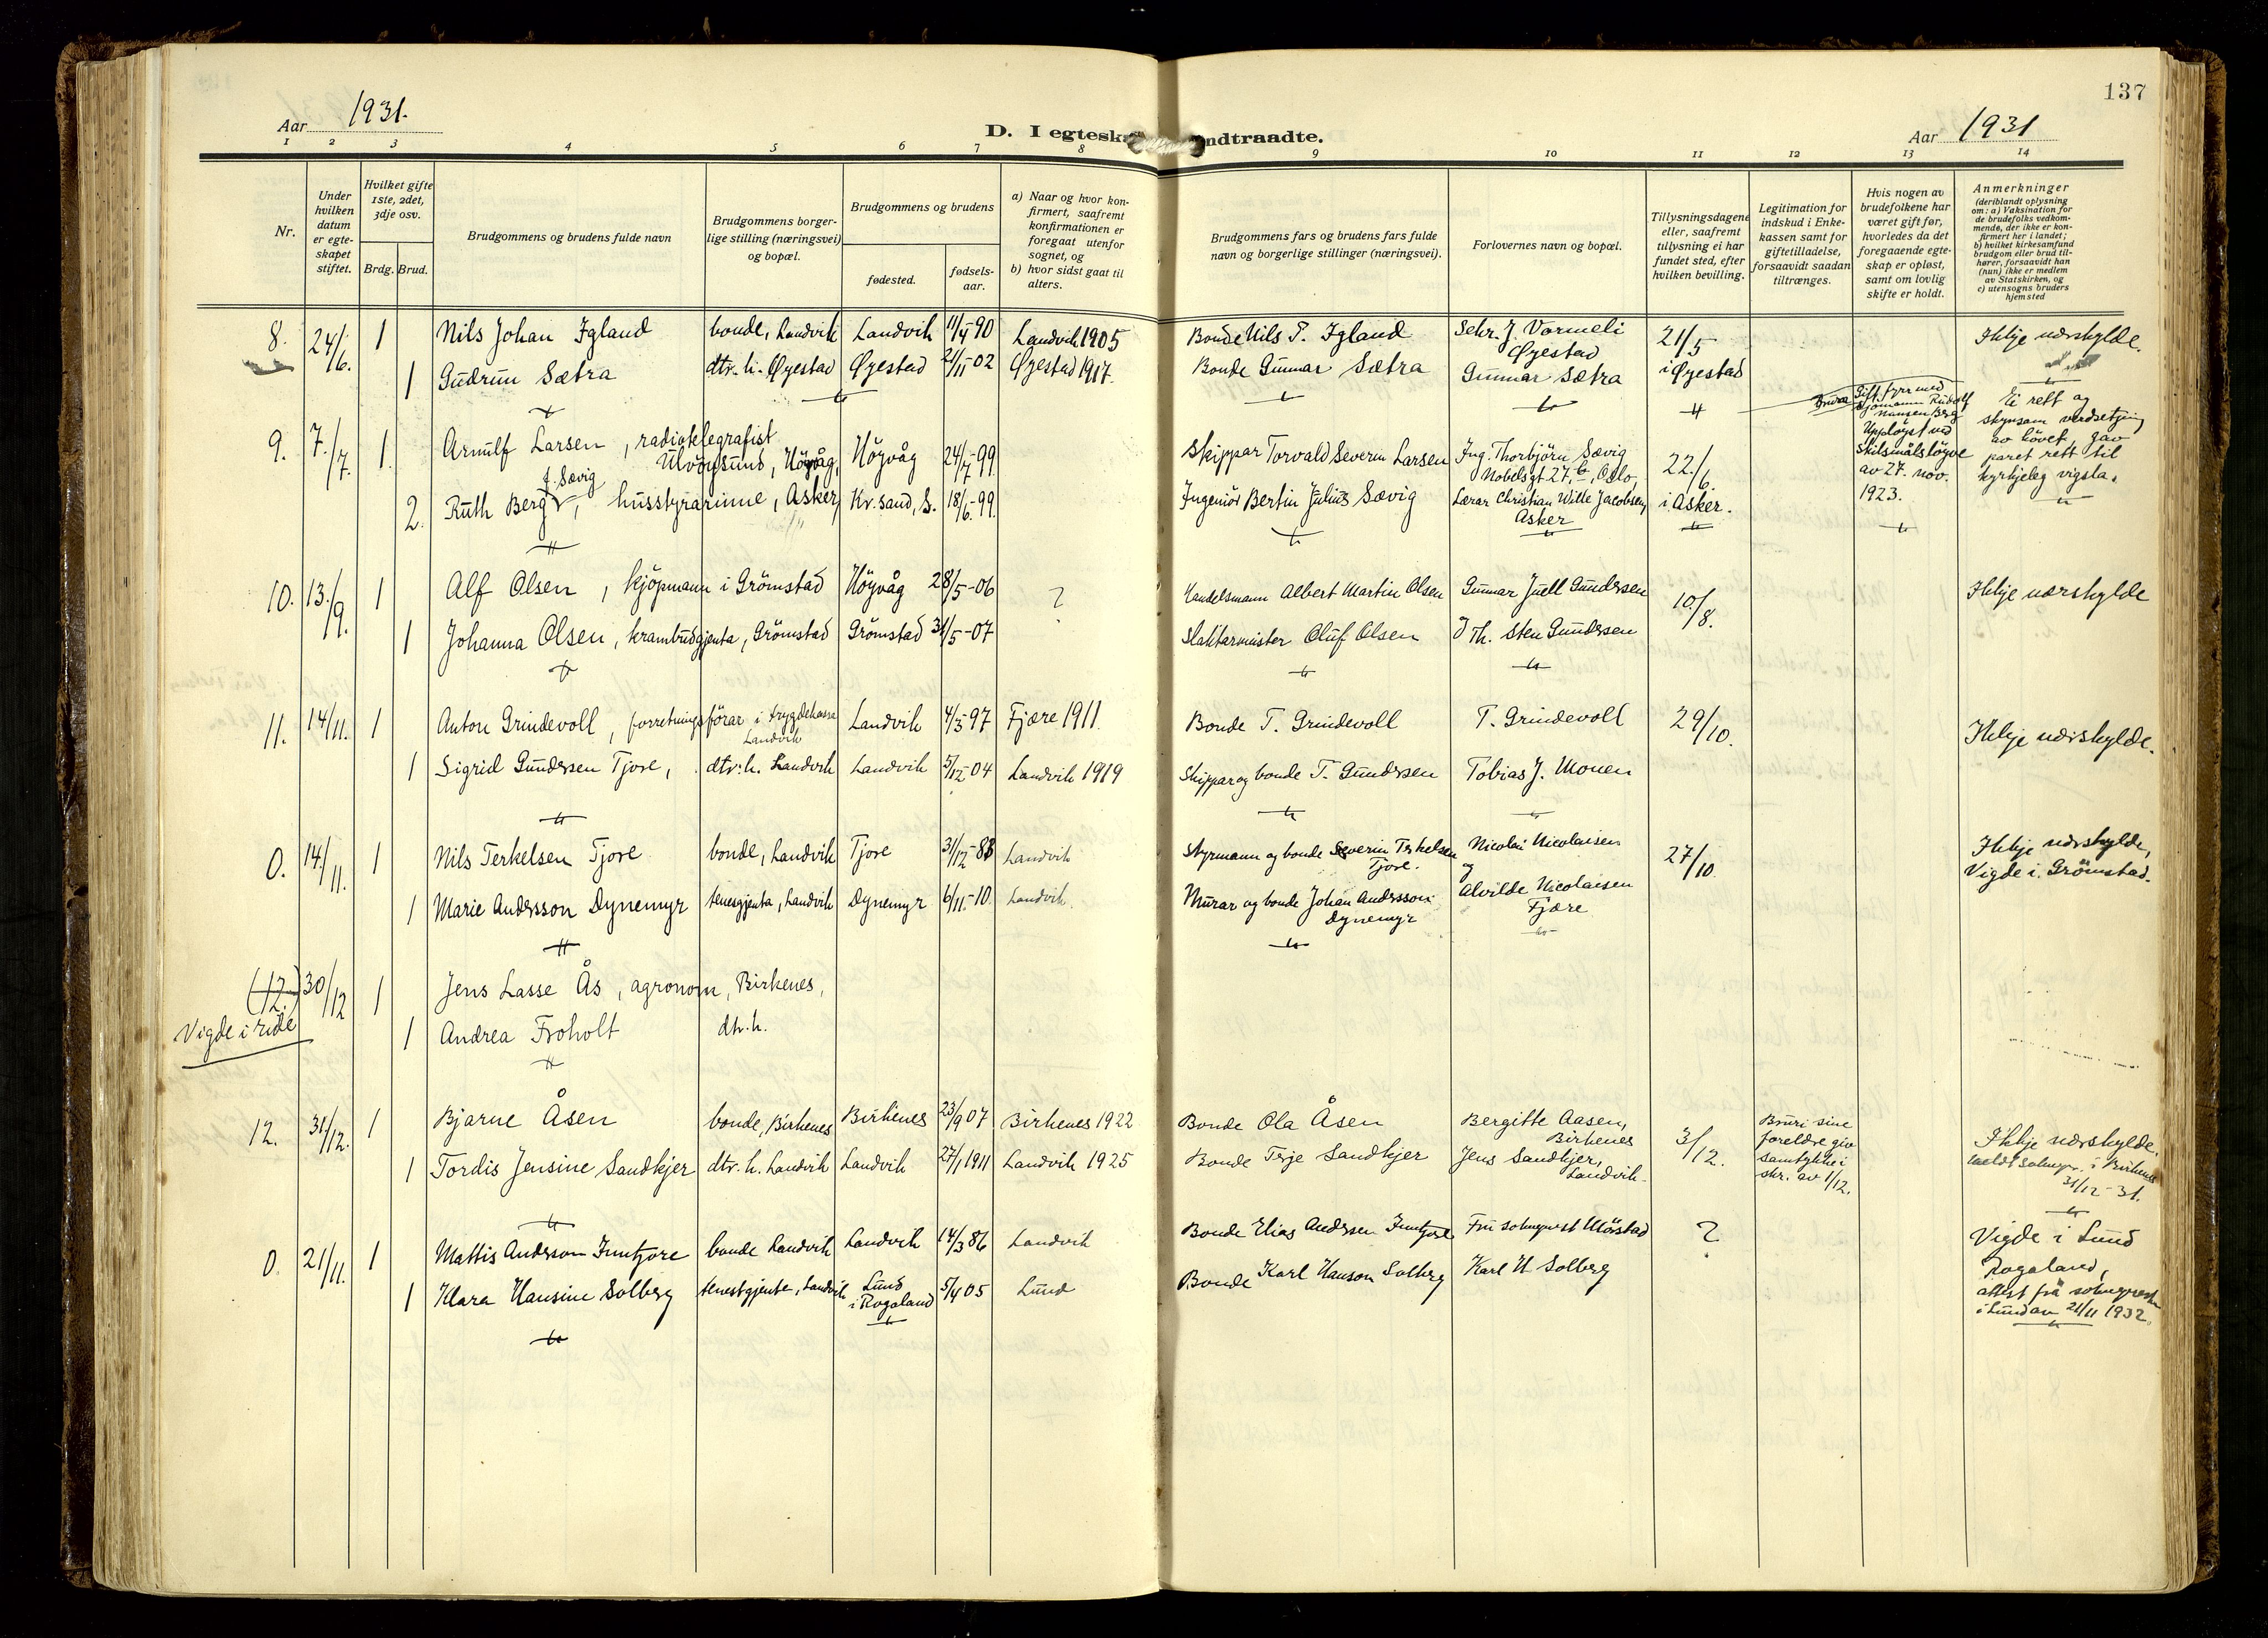 137
Aar 1931.
D. I egteska
ndtraadte.
Aar 1931
1 2 3 4 5 6 7 8 9 10 11 12 13 14
Nr.
Under hvilken datum er egteskapet stiftet.
Hvilket gifte 1ste, 2det, 3dje osv.
Brdg. Brud.
Brudgommens og brudens fulde navn
Brudgommens borgerlige stilling (næringsvei) og bopæl.
Brudgommens og brudens
fødested.
fødselsaar.
a) Naar og hvor konfirmert, saafremt konfirmationen er foregaat utenfor sognet, og
b) hvor sidst gaat til alters.
Brudgommens fars og brudens fars fulde navn og borgerlige stillinger (næringsvei).
Forlovernes navn og bopæl.
Tillysningsdagene eller, saafremt tillysning ei har fundet sted, efter hvilken bevilling.
Legitimation for indskud i Enkekassen samt for giftetilladelse, forsaavidt saadan tiltrænges.
Hvis nogen av brudefolkene har været gift før, hvorledes da det foregaaende egteskap er opløst, samt om lovlig skifte er holdt.
Anmerkninger (deriblandt oplysning om: a) Vaksination for de brudefolks vedkommende, der ikke er konfirmert her i landet; b) hvilket kirkesamfund brudgom eller brud tilhører, forsaavidt han (hun) ikke er medlem av Statskirken, og c) utensogns bruders hjemsted
8. 24/6. 1 Nils Johan Igland bonde, Landvik Landvik 11/4 90 Landvik 1905 Bonde Nils T. Igland Sekr. J. Vormeli Øyestad 21/5 i Øyestad Ikkje nærskylde.
1 Gudrun Sætra dtr. h. Øyestad Øyestad 21/11 02 Øyestad 1917. Bonde Gunnar Sætra Gunnar Sætra
9. 7/7. 1 Arnulf Larsen, radiotelegrafist Ulvøysund, Höyvåg, Höyvåg 24/7-99 Skippar Torvald Severin Larsen Ing. Thorbjörn Sævig Nobelsgt 27, b, Oslo, 22/6. i Asker.
2. Ruth Berg f. Sævig, husstyrarinne, Asker Kr.sand, S. 18/6-99. Ingeniör Bertin Julius Sævig Lærar Christian Wille Jacobsen, Asker
Brura Gift fyrr med Rudolf Hansen Berg Uppløyst ved Skilsmålsløyve av 27. nov. 1923.
Ei rett og skynsam verdsetjing av høvet gav paret rett til kyrkjeleg vigsla.
10. 13./9. 1 Alf Olsen, kjöpmann i Grömstad Höyvåg 28/5-06 ? Handelsmann Albert Martin Olsen Gunnar Juell Gundersen 10/8. Ikkje nærskylde
1 Johanna Olsen, krambudgjenta, Grömstad Grömstad 31/5-07 Slaktarmeister Oluf Olsen J Th. Sten Gundersen
11. 14/11. 1 Anton Grindevoll, forretningsförar i trygdekassa Landvik Landvik 4/3-97 Fjære 1911. Bonde T. Grindevoll T. Grindevoll 29/10. Ikkje nærskylde.
1 Sigrid Gundersen Tjore, dtr. h. Landvik Landvik 5/12-04 Landvik 1919 Skippar og bonde T. Gundersen Tobias J. Monen
0. 14./11. 1 Nils Terkelsen Tjore bonde, Landvik Tjore 31/12-88 Landvik Styrmann og bonde Severin Terkelsen Tjore. Nicolai Nicolaisen og 27/10. Ikkje nærskylde, Vigde i Grömstad.
1 Marie Andersson Dynemyr tenesgjenta, Landvik Dynemyr 6/11-10. Landvik. Murar og bonde Johan Andersson Dynemyr Alvilde Nicolaisen Fjære
(12.) 30/12 1 Jens Lasse Ås, agronom, Birkenes,
Vigde i Eide 1 Andrea Froholt dtr. h.
12. 31/12. 1 Bjarne Åsen bonde, Birkenes Birkenes 23/9 07 Birkenes 1922 Bonde Ola Åsen Bergitte Aasen, Birkenes 3/12. Bruri sine foreldre giv samtykke i skr. av 1/12. Ikkje nærskylde. meldt soknepr. i Birkenes 31/12-31.
1 Tordis Jensine Sandkjer dtr. h. Landvik Landvik 27/1 1911 Landvik 1925 Bonde Terje Sandkjer Jens Sandkjer, Landvik.
0. 21/11. 1 Mattis Anderson Inntjore bonde Landvik Landvik 14/3 86 Landvik Bonde Elias Andersen Inntjore Fru sokneprest Mörstad ? Vigde i Lund Rogaland, attest frå sokneprest i Lund av 21/11 1932.
1 Klara Hansine Solberg tenestgjente, Landvik Lund i Rogaland 5/4 05 Lund Bonde Karl Hanson Solberg Karl H Solberg